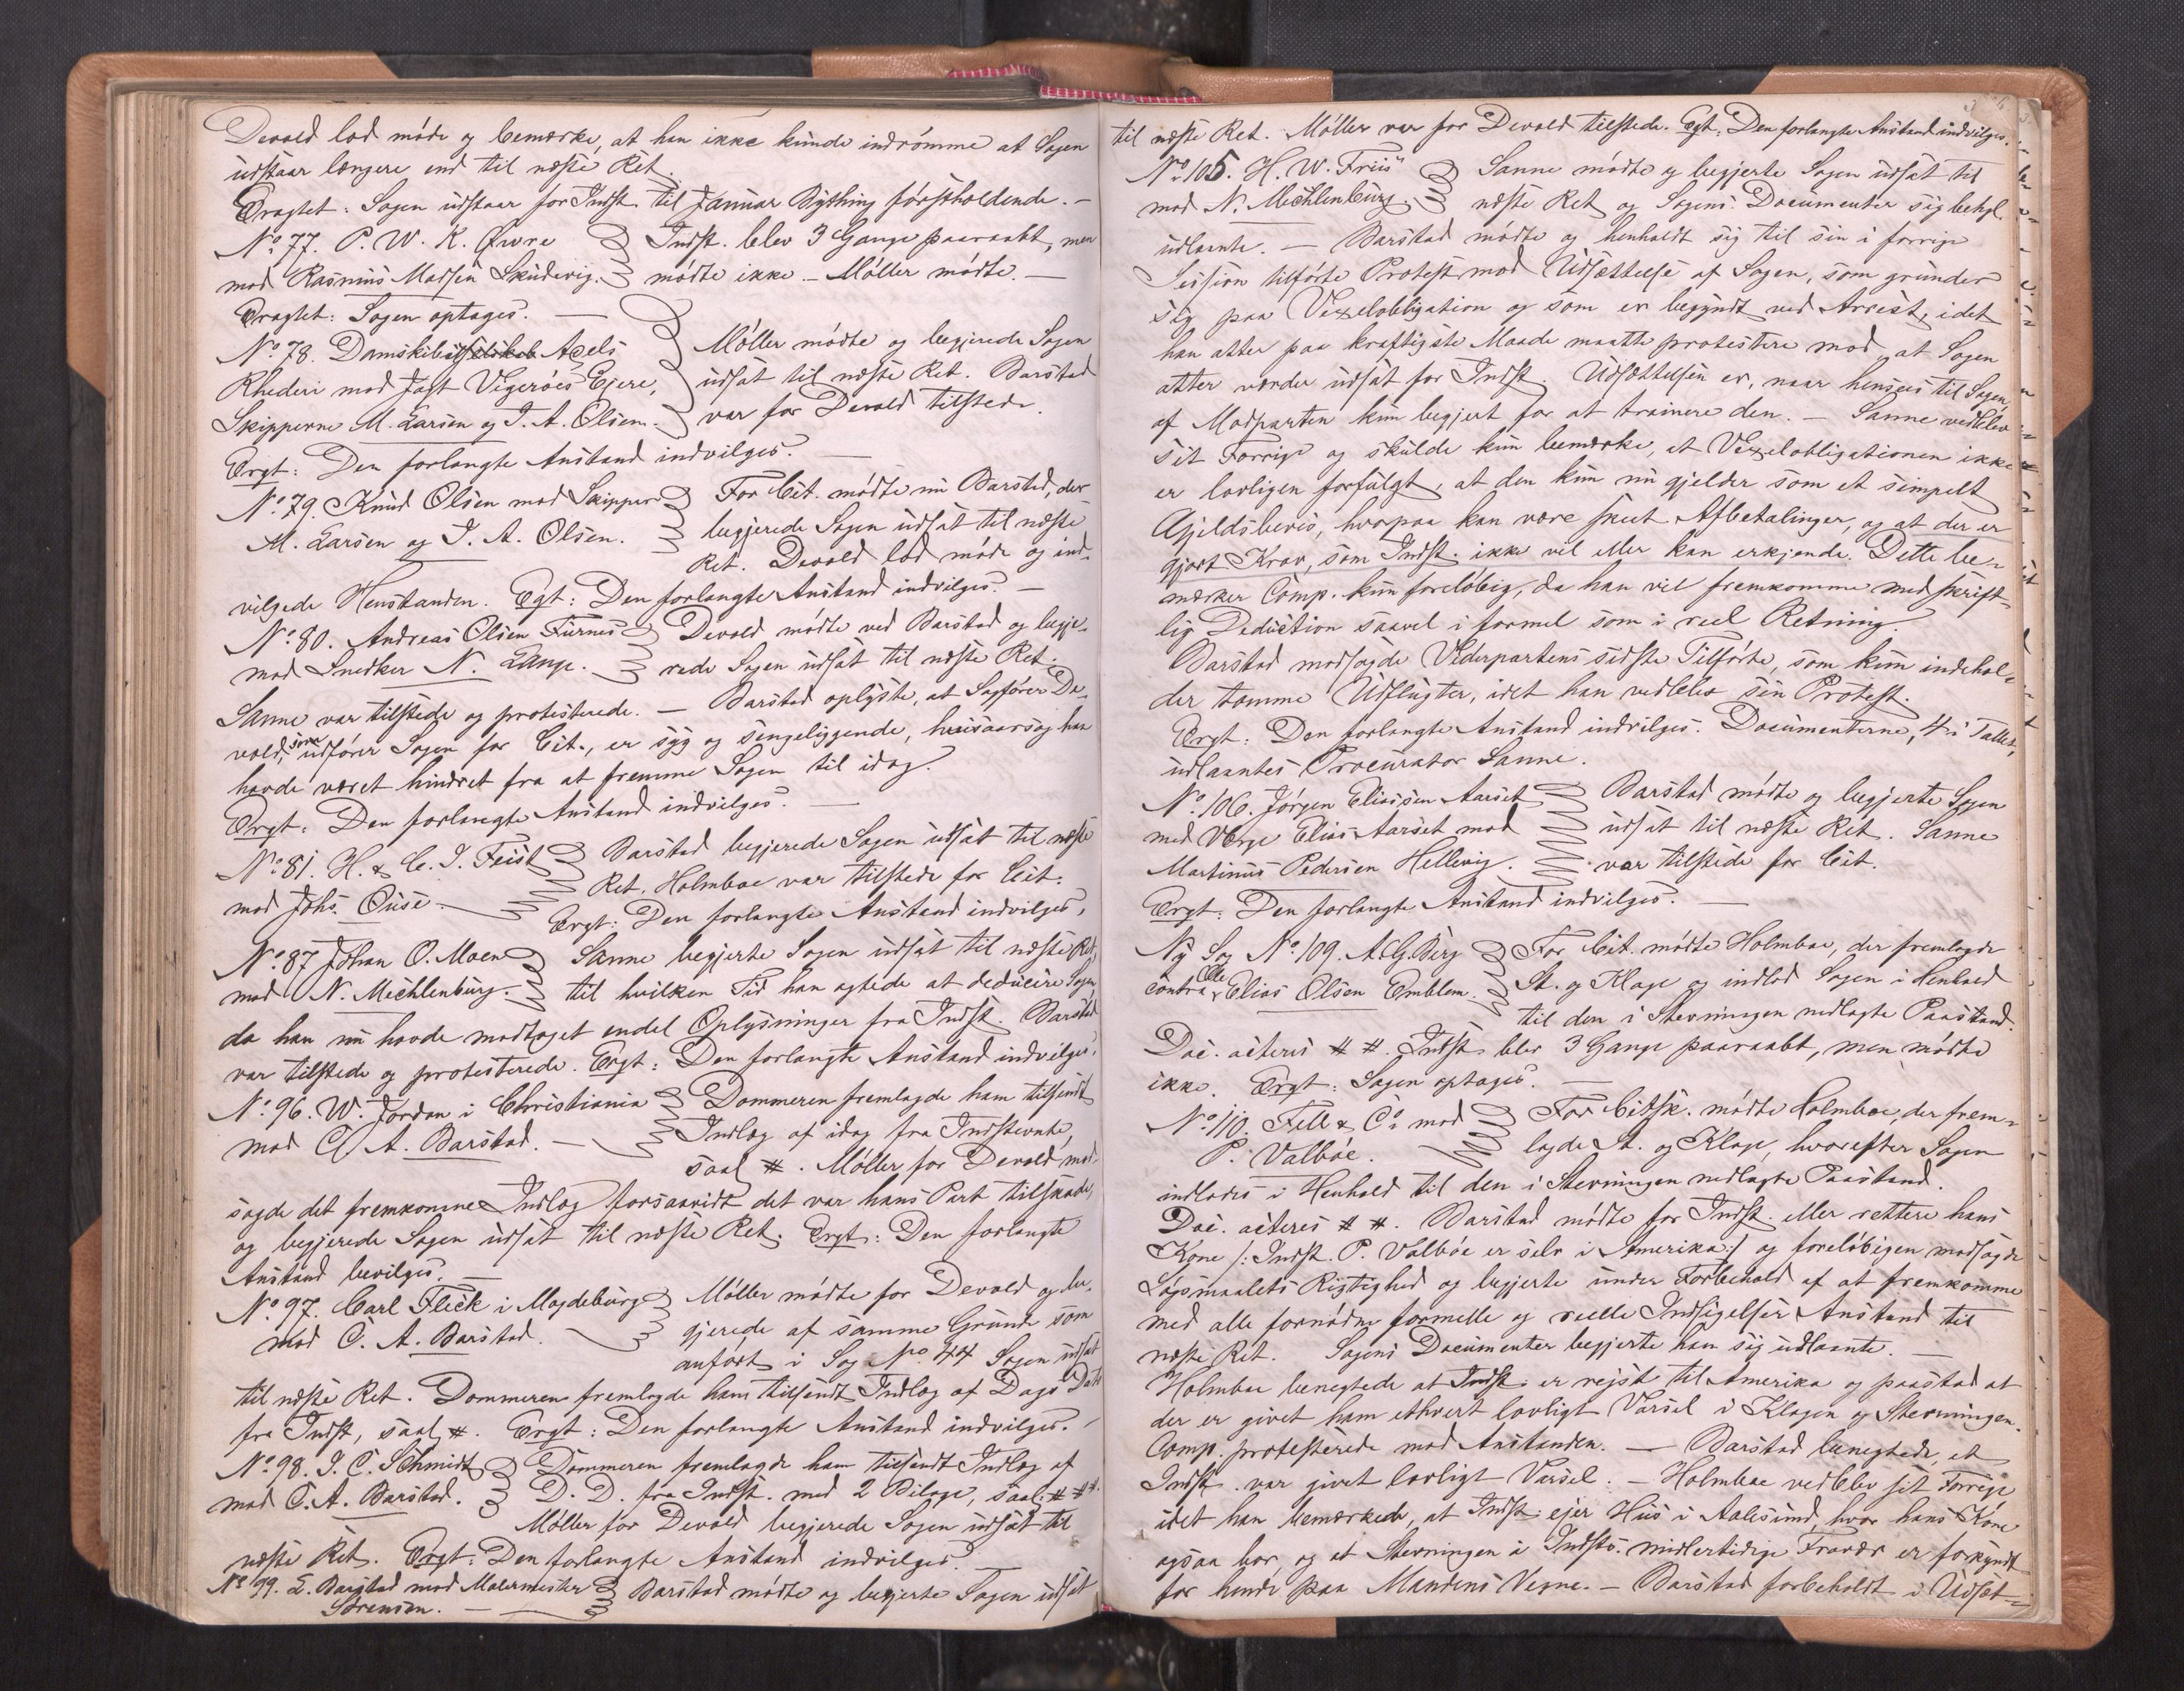 Devold lod møde og bemærke, at han ikke kunde indrømme at Sagen
udstaar længere end til næste Ret.
Eragtet: Sagen udstaar for Indst. til Januar Bything førstholdende. —
No 77. P. W. K. Øwre
mod Rasmus Madsen Skudevig.
Indst. blev 3 Gange paaraabt, men
mødte ikke. — Møller mødte. —
Eragtet: Sagen optages. —
No 78. Damskibsselskab Axels
Rhederi mod Jagt Vigerøes Ejere,
Skipperne M. Larsen og J. A. Olsen.
Møller mødte og begjerede Sagen
udsat til næste Ret. Barstad
var for Devold tilstede.
Ergt: Den forlangte Anstand indvilges. —
No 79. Knud Olsen mod Skipper
M. Larsen og J. A. Olsen.
For Cit. mødte nu Barstad, der
begjerede Sagen udsat til næste
Ret. Devold lod møde og ind-
vilgede Henstanden. Egt: Den forlangte Anstand indvilges. —
No 80. Andreas Olsen Furnes
mod Snedker N. Lange.
Devold mødte ved Barstad og begje-
rede Sagen udsat til næste Ret.
Sanne var tilstede og protesterede. — Barstad oplyste, at Sagfører De-
vold, som udfører Sagen for Cit., er syg og sengeliggende, hvisaarsag han
havde været hindret fra at fremme Sagen til idag.
Ergt: Den forlangte Anstand indvilges. —
No 81. H. & C. J. Feist
mod Johs. Ouse. —
Barstad begjerede Sagen udsat til næste
Ret. Holmboe var tilstede for Cit.
Ergt: Den forlangte Anstand indvilges.
No 87 Johan O. Moen
mod N. Mechlenburg.
Sanne begjerte Sagen udsat til næste Ret,
til hvilken Tid han agtede at deducere Sagen,
da han nu havde modtaget endel Oplysninger fra Indst. Barstad
var tilstede og protesterede. Ergt: Den forlangte Anstand indvilges.
No 96. W. Jordan i Christiania
mod C. A. Barstad. —
Dommeren fremlagde ham tilsendt
Indlæg af idag fra Indstevnte,
saal. #. Møller for Devold mod-
sagde det fremkomne Indlæg forsaavidt det var hans Part tilskade,
og begjerede Sagen udsat til næste Ret. Ergt: Den forlangte
Anstand bevilges. —
No 97. Carl Fleck i Magdeburg
mod C. A. Barstad. —
Møller mødte for Devold og be-
gjerede af samme Grunde som
anført i Sag No 44 Sagen udsat
til næste Ret. Dommeren fremlagde ham tilsendt Indlæg af Dags Dato
fra Indst, saal. #. Ergt: Den forlangte Anstand indvilges. —
No 98. J. C. Schmidt
mod C. A. Barstad.
Dommeren fremlagde ham tilsendt Indlæg af
D. D. fra Indst. med 2 Bilage, saal: # ##
Møller for Devold begjerede Sagen udsat til
næste Ret. Ergt: Den forlangte Anstand indvilges. —
No 99. L. Barstad mod Malermester
Sørensen. —
Barstad mødte og begjerte Sagen udsat
til næste Ret. Møller var for Devold tilstede. Egt: Den forlangte Anstand indvilges.
No 105. H. W. Friis
mod N. Mechlenburg.
Sanne mødte og begjerte Sagen udsat til
næste Ret og Sagens Documenter sig behgl.
udlaante. — Barstad mødte og henholdt sig til sin i forrige
Session tilførte Protest mod Udsættelse af Sagen, som grunder
sig paa Vexelobligation og som er begyndt ved Arrest, idet
han atter paa kraftigste Maade maatte protestere mod, at Sagen
atter værder udsat for Indst. Udsættelsen er, naar hensees til Sagen,
af Modparten kun begjert for at trainere den. — Sanne vedblev
sit Forrige og skulde kun bemærke, at Vexelobligationen ikke
er lovligen forfulgt, at den kun nu gjelder som et simpelt
Gjeldsbevis, hvorpaa kan være skeet Afbetalinger, og at der er
gjort Krav, som Indst. ikke vil eller kan erkjende. Dette be-
mærker Comp. kun foreløbig, da han vil fremkomme med skrift-
lig Deduction saavel i formel som i reel Retning.
Barstad modsagde Vederpartens sidste Tilførte, som kun indehol-
der tomme Udflugter, idet han vedblev sin Protest.
Ergt: Den forlangte Anstand indvilges. Documenterne, 4 i Tallet,
udlaantes Procurator Sanne.
No 106. Jørgen Eliassen Aarset
med Verge Elias Aarset mod
Martinus Pedersen Hellevig.
Barstad mødte og begjerte Sagen
udsat til næste Ret. Sanne
var tilstede for Cit.
Ergt: Den forlangte Anstand indvilges. —
Ny Sag No 109. A. G. Berg
contra Ole Elias Olsen Emblem.
For Cit. mødte Holmboe, der fremlagde
St. og Klage og indlod Sagen i Henhold
til den i Stevningen nedlagte Paastand.
Doc. acteres # #. Indst. blev 3 Gange paaraabt, men mødte
ikke. Ergt: Sagen optages. —
No 110. Fett & Co mod
P. Valbøe.
For Citsk. mødte Holmboe, der frem-
lagde St. og Klage, hvorefter Sagen
indlodes i Henhold til den i Stevningen nedlagte Paastand.
Doc. acteres # #. Barstad mødte for Indst. eller rettere hans
Kone /: Indst. P. Valbøe er selv i Amerika :/ og foreløbigen modsagde
Søgsmaalets Rigtighed og begjerte under Forbehold af at fremkomme
med alle fornødne formelle og reelle Indsigelser Anstand til
næste Ret. Sagens Documenter begjerte han sig udlaante. —
Holmboe benegtede at Indst. er rejst til Amerika og paastod at
der er givet ham ethvert lovligt Varsel i Klagen og Stevningen.
Comp. protesterede mod Anstanden. — Barstad benegtede, at
Indst. var givet lovligt Varsel. — Holmboe vedblev sit Forrige
idet han bemærkede, at Indst. ejer Hus i Aalesund, hvor hans Kone
ogsaa bor, og at Stevningen i Indsts. midlertidige Fravær er forkyndt
for hende paa Mandens Vegne. — Barstad forbeholdt i Udsæt-